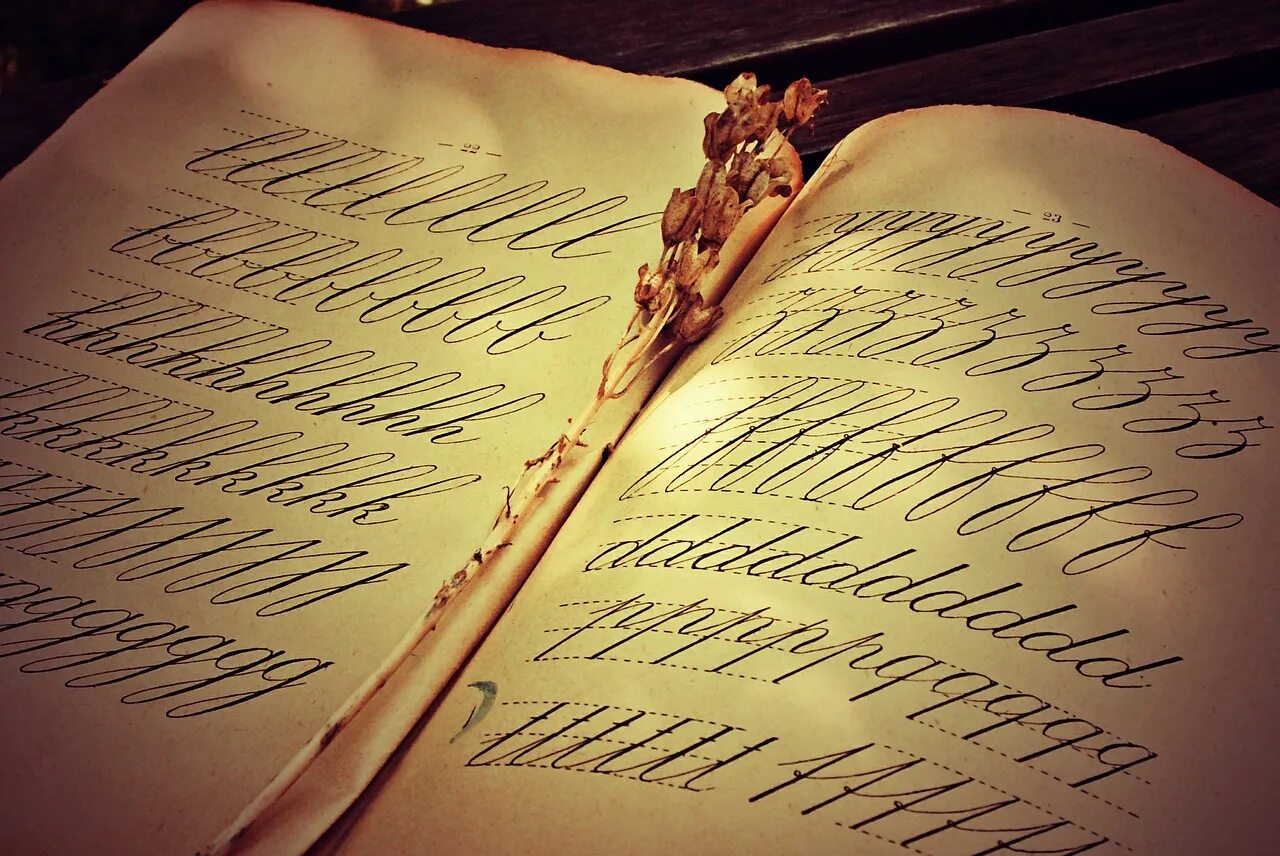 — 22 —
llllllllll
bbbbbbbbbb
hhhhhhhhhhh
kkkkkkkkkk
jjjjjjjj
ggggggggg
— 23 —
yyyyyyyyyyy
zzzzzzzzzz
ffffffffff
ddddddddddd
ppppppqqqqqq
ttttttt